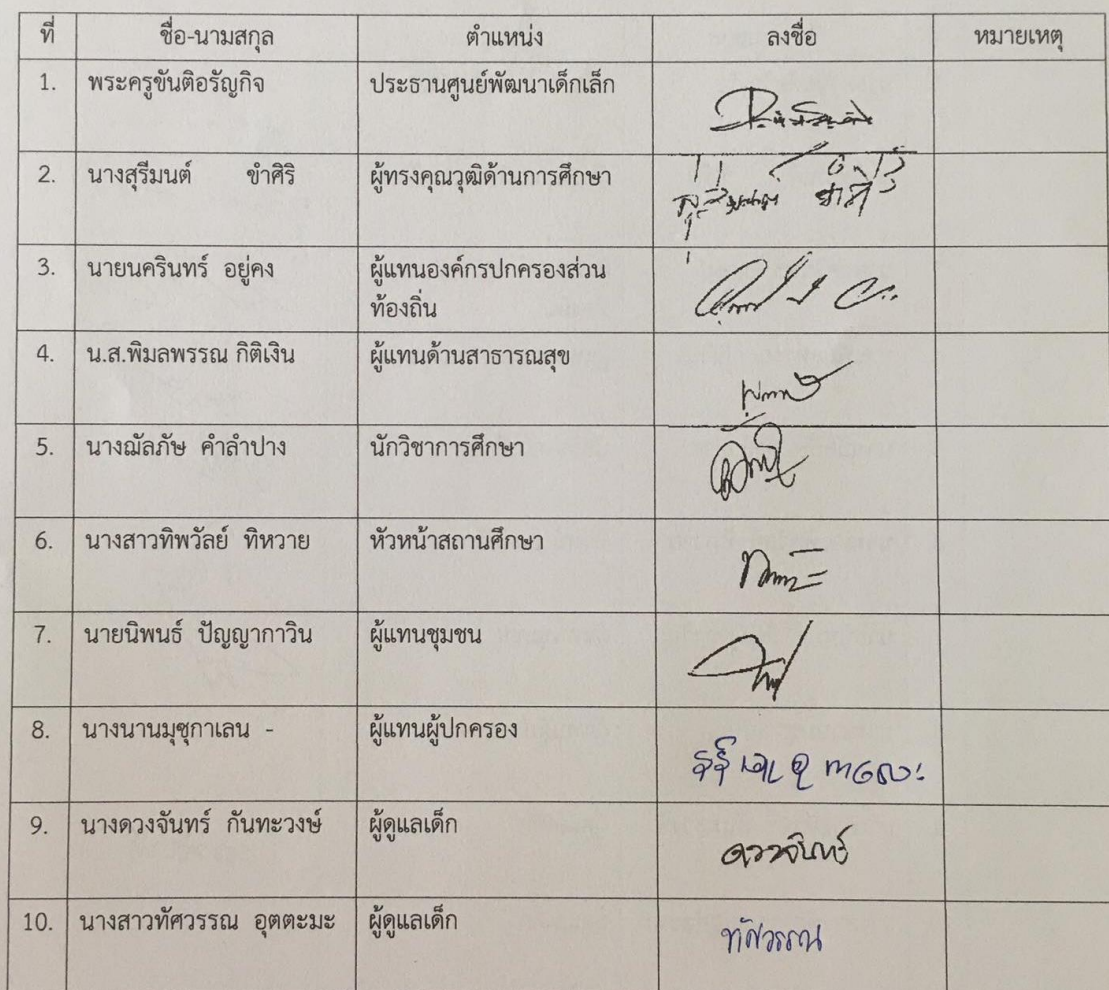 ที่ ชื่อ-นามสกุล ตำแหน่ง ลงชื่อ หมายเหตุ
1. พระครูขันติอรัญกิจ ประธานศูนย์พัฒนาเด็กเล็ก
2. นางสุรีมนต์ ขำศิริ ผู้ทรงคุณวุฒิด้านการศึกษา สุรีมนต์ ขำศิริ
3. นายนครินทร์ อยู่คง ผู้แทนองค์กรปกครองส่วน
ท้องถิ่น
4. น.ส.พิมลพรรณ กิติเงิน ผู้แทนด้านสาธารณสุข
5. นางฌัลภัษ คำลำปาง นักวิชาการศึกษา
6. นางสาวทิพวัลย์ ทิหวาย หัวหน้าสถานศึกษา
7. นายนิพนธ์ ปัญญากาวิน ผู้แทนชุมชน
8. นางนานมุซุกาเลน - ผู้แทนผู้ปกครอง
9. นางดวงจันทร์ กันทะวงษ์ ผู้ดูแลเด็ก ดวงจันทร์
10. นางสาวทัศวรรณ อุตตะมะ ผู้ดูแลเด็ก ทัศวรรณ